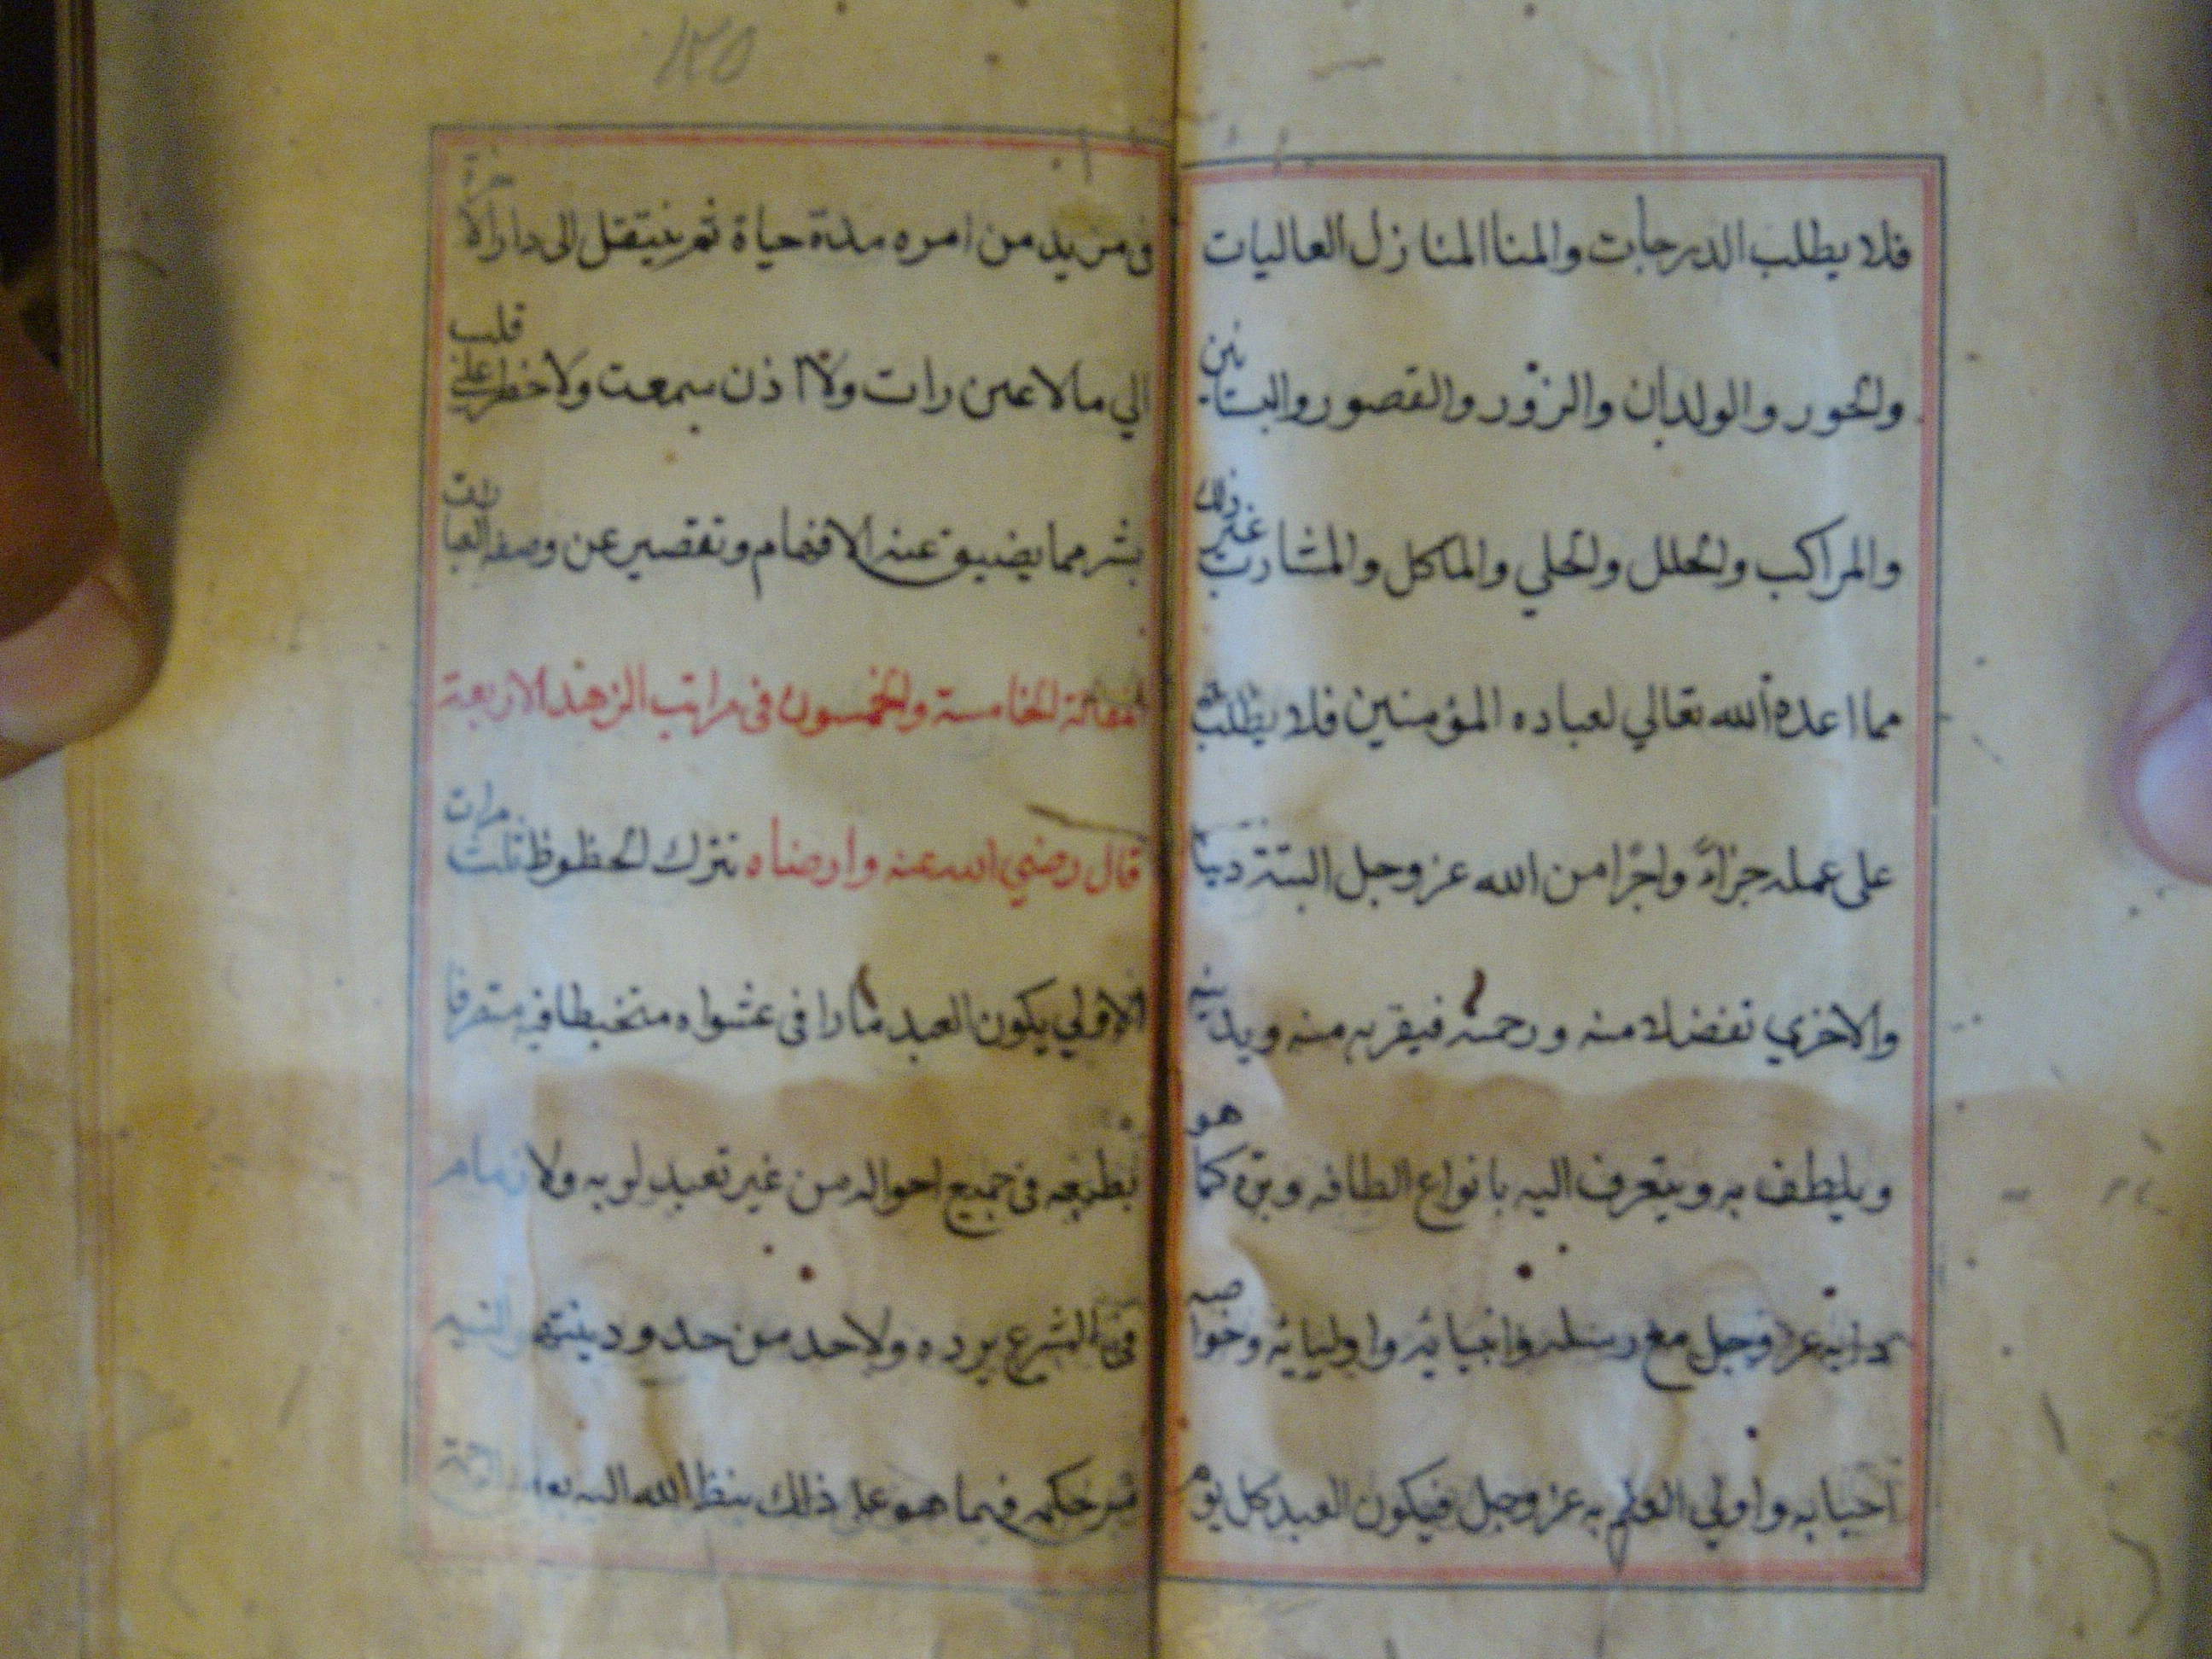 فلا يطلب الدرجات والمنا المنازل العاليات
والحور والولدان والزور والقصور والبساتين
والمراكب والحلل والحلي والماكل والمشارب غير ذلك
مما اعده الله تعالي لعباده المؤمنين فلا يطلب
على عمله جزاءً واجرًا من الله عز وجل البتة دنيا
والاخري تفضلا منه ورحمة فيقربه منه ويدنيه
ويلطف به ويتعرف اليه بانواع الطافه وبره كما هو
دابه عز وجل مع رسله وانبيائه واوليائه وخواصه
احبابه واولي العلم به عز وجل فيكون العبد كل يوم
١٢٥
فى مزيد من امره مدة حياة ثم ينتقل الى دار الاخرة
الي ما لا عين رات ولا اذن سمعت ولا خطر على قلب
بشر مما يضيق عنه الافهام وتقصير عن وصفه العبارات
المقالة الخامسة والخمسون فى مراتب الزهد الاربعة
قال رضي الله عنه وارضاه تترك الحظوظ ثلث مرات
الاولي يكون العبد مارا فى عشواه متخبطا فيه متصرفا
بطبعه فى جميع احواله من غير تعبد لربه ولا زمام
فى الشرع يرده ولا حد من حدود ينتهى اليه
حكمه فيما هو على ذلك ينظر الله اليه